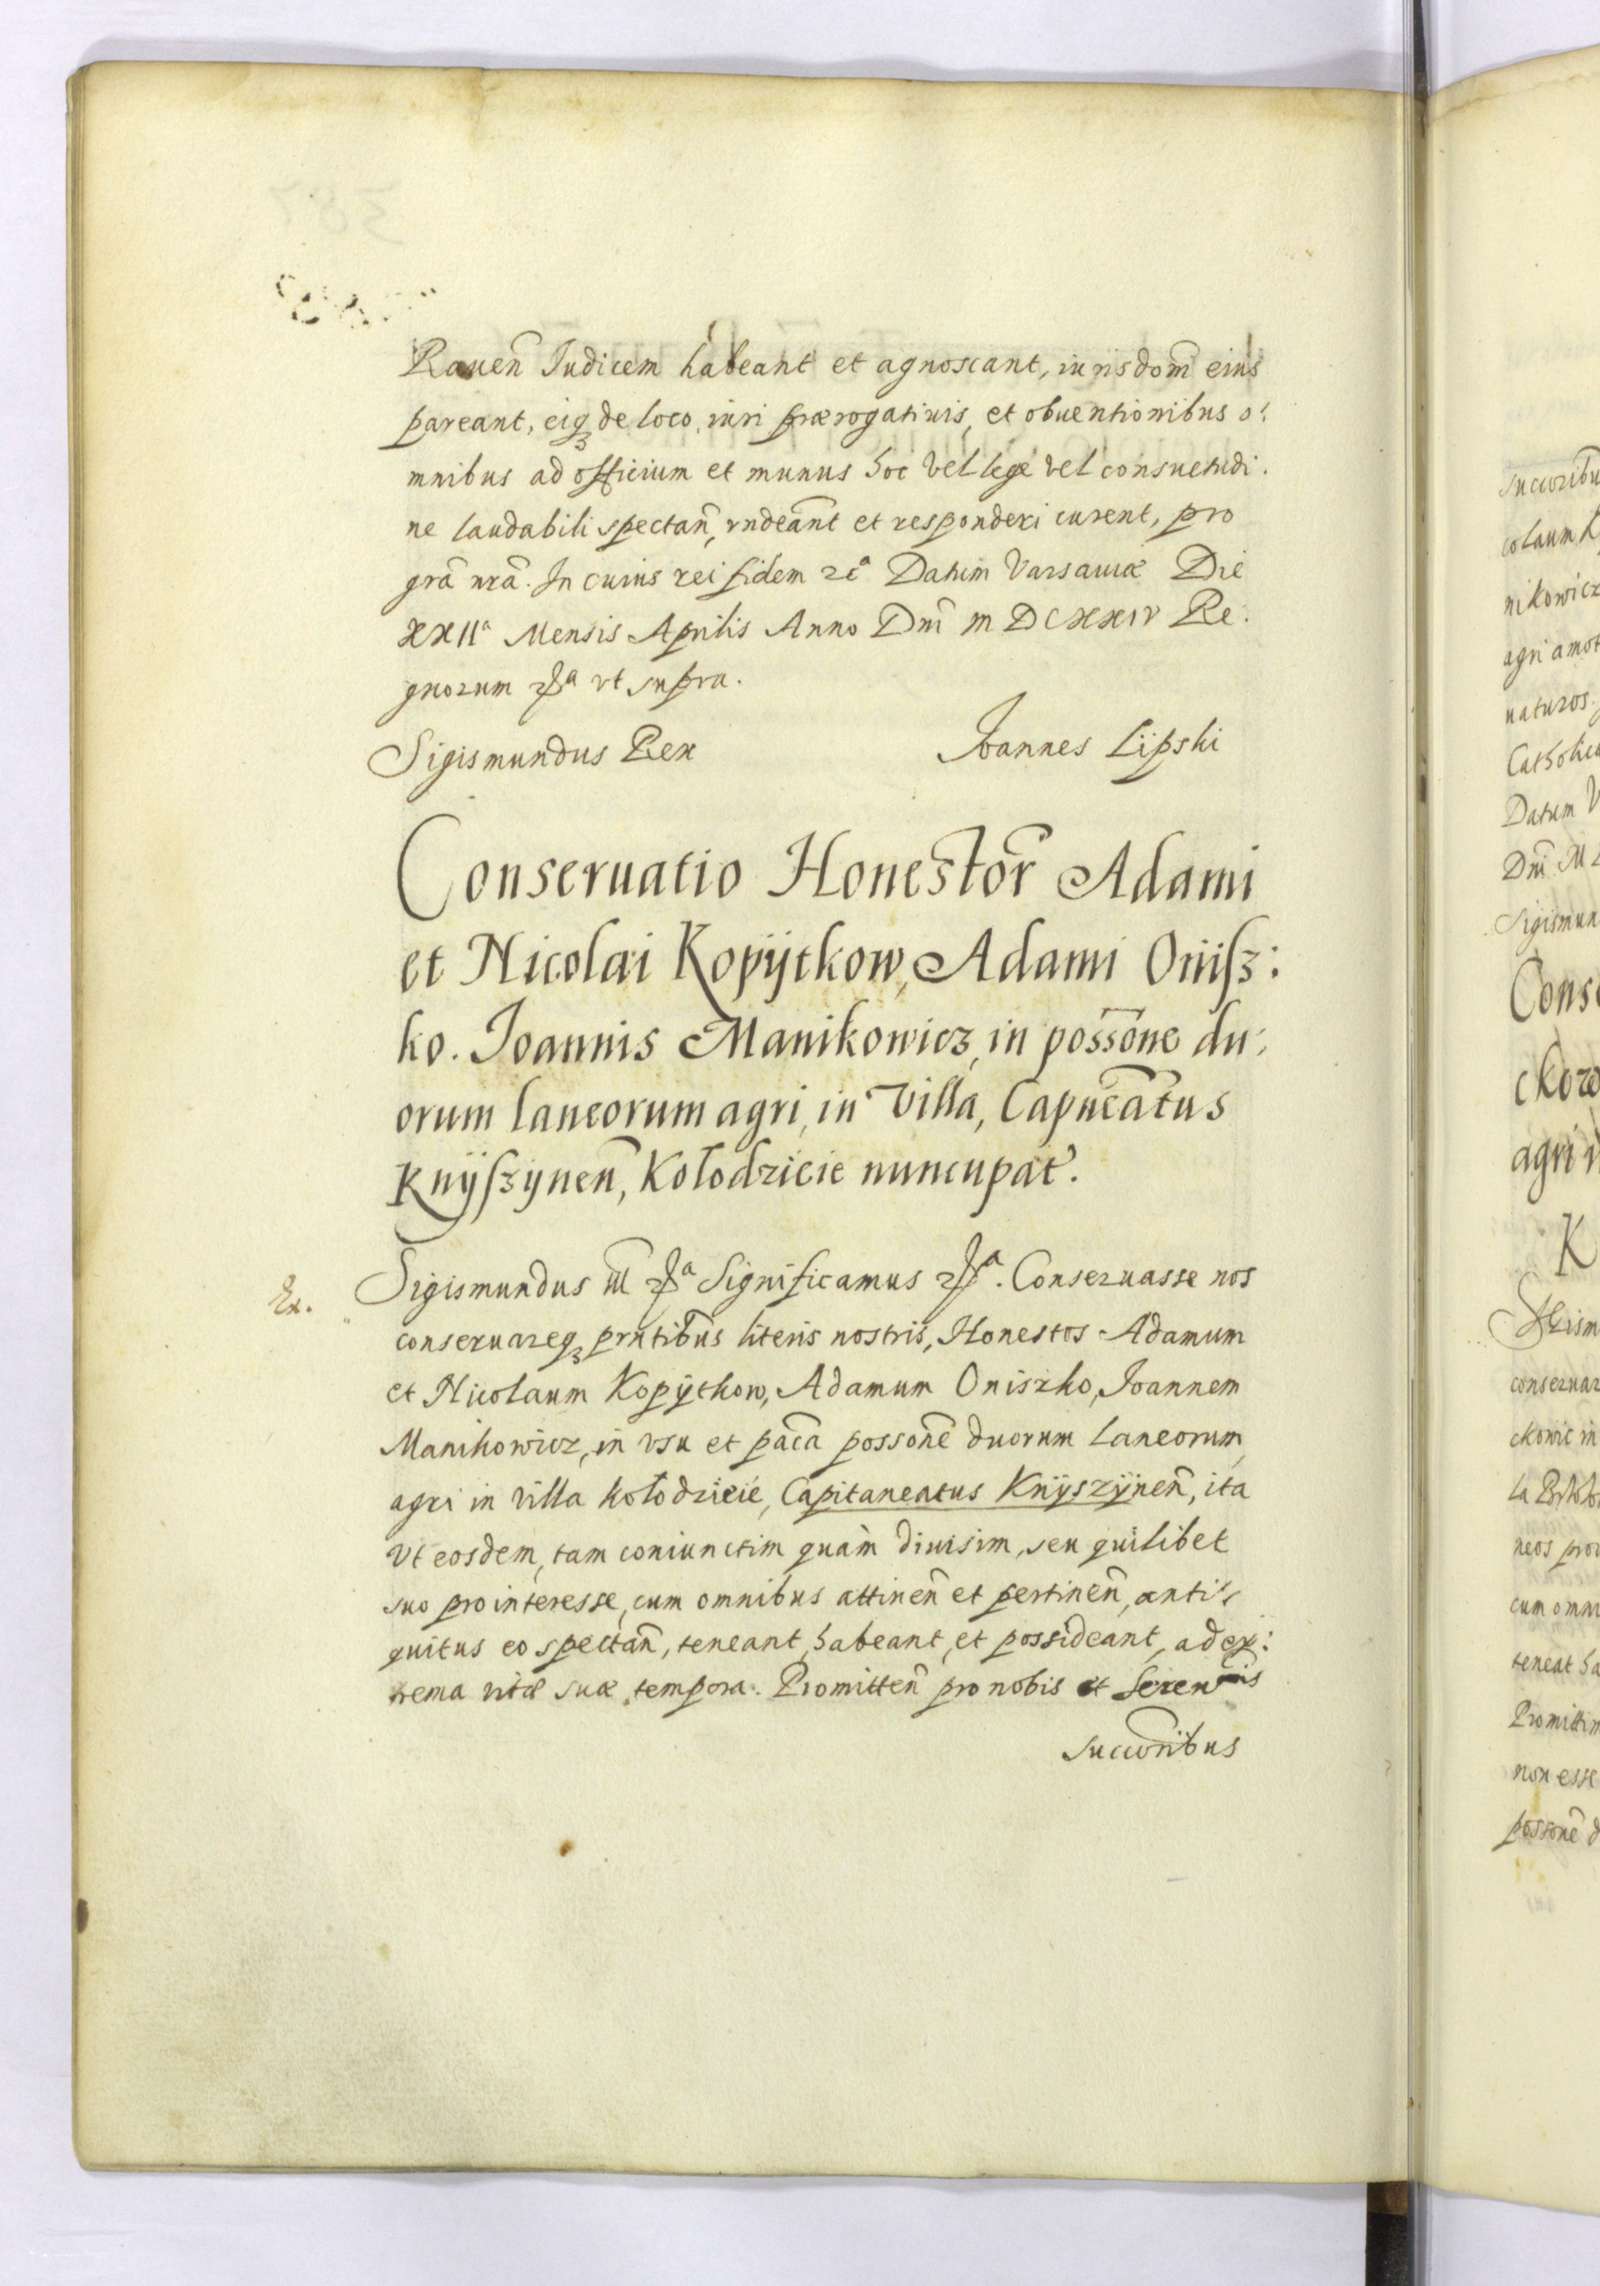 Rauen̄ Iudicem habeant et agnoscant, iurisdom̄ eius
pareant, eiq₃ de loco, iuri prærogatiuis, et obuentionibus o:
mnibus ad officium et munus hoc vel lege vel consuetudi:
ne laudabili spectan̄, rndeant et responderi curent, pro
grā nrā. In cuius rei fidem &cª Datum Varsauiæ Die
XXIIª Mensis Aprilis Anno Dnī MDCXXIV Re:
gnorum &ª vt supra.
Sigismundus Rex Joannes Lipski
Conseruatio Honestor̄ Adami
et Nicolai Kopÿtkow, Adami Onisz:
ko. Joannis Manikowicz, in possōne du:
orum laneorum agri, in villa, Capneātus
Knÿszynen̄, Kołodzieie nuncupat.
Ex.
Sigismundus III &ª Significamus &ª. Conseruasse nos
conseruareq₃ prntibus literis nostris, Honestos Adamum
et Nicolaum Kopÿtkow, Adamum Oniszko, Joannem
Manikowicz, in vsu et pācā possonē duorum laneorum,
agri in villa Kołodzieie, Capitaneatus Knÿszÿnen̄, ita
vt eosdem, tam coniunctim quàm diuisim, seu quilibet
suo pro interesse, cum omnibus attinen̄ et pertinen̄, anti:
quitus eo spectan̄, teneant, habeant, et possideant, ad ex:
trema vitæ suæ tempora. Promitten̄ pro nobis et Seren̄mis
succōribus
succoribu
colaum K
nikowicz
agri amot
naturos.
Catholic
Datum V
Dnī M
Sigismun
Conse
ckow
agri i
K
Sigism
conseruar
ckowic in
neos pro
cum omni
teneat ha
Promittim
non esse
possonē d